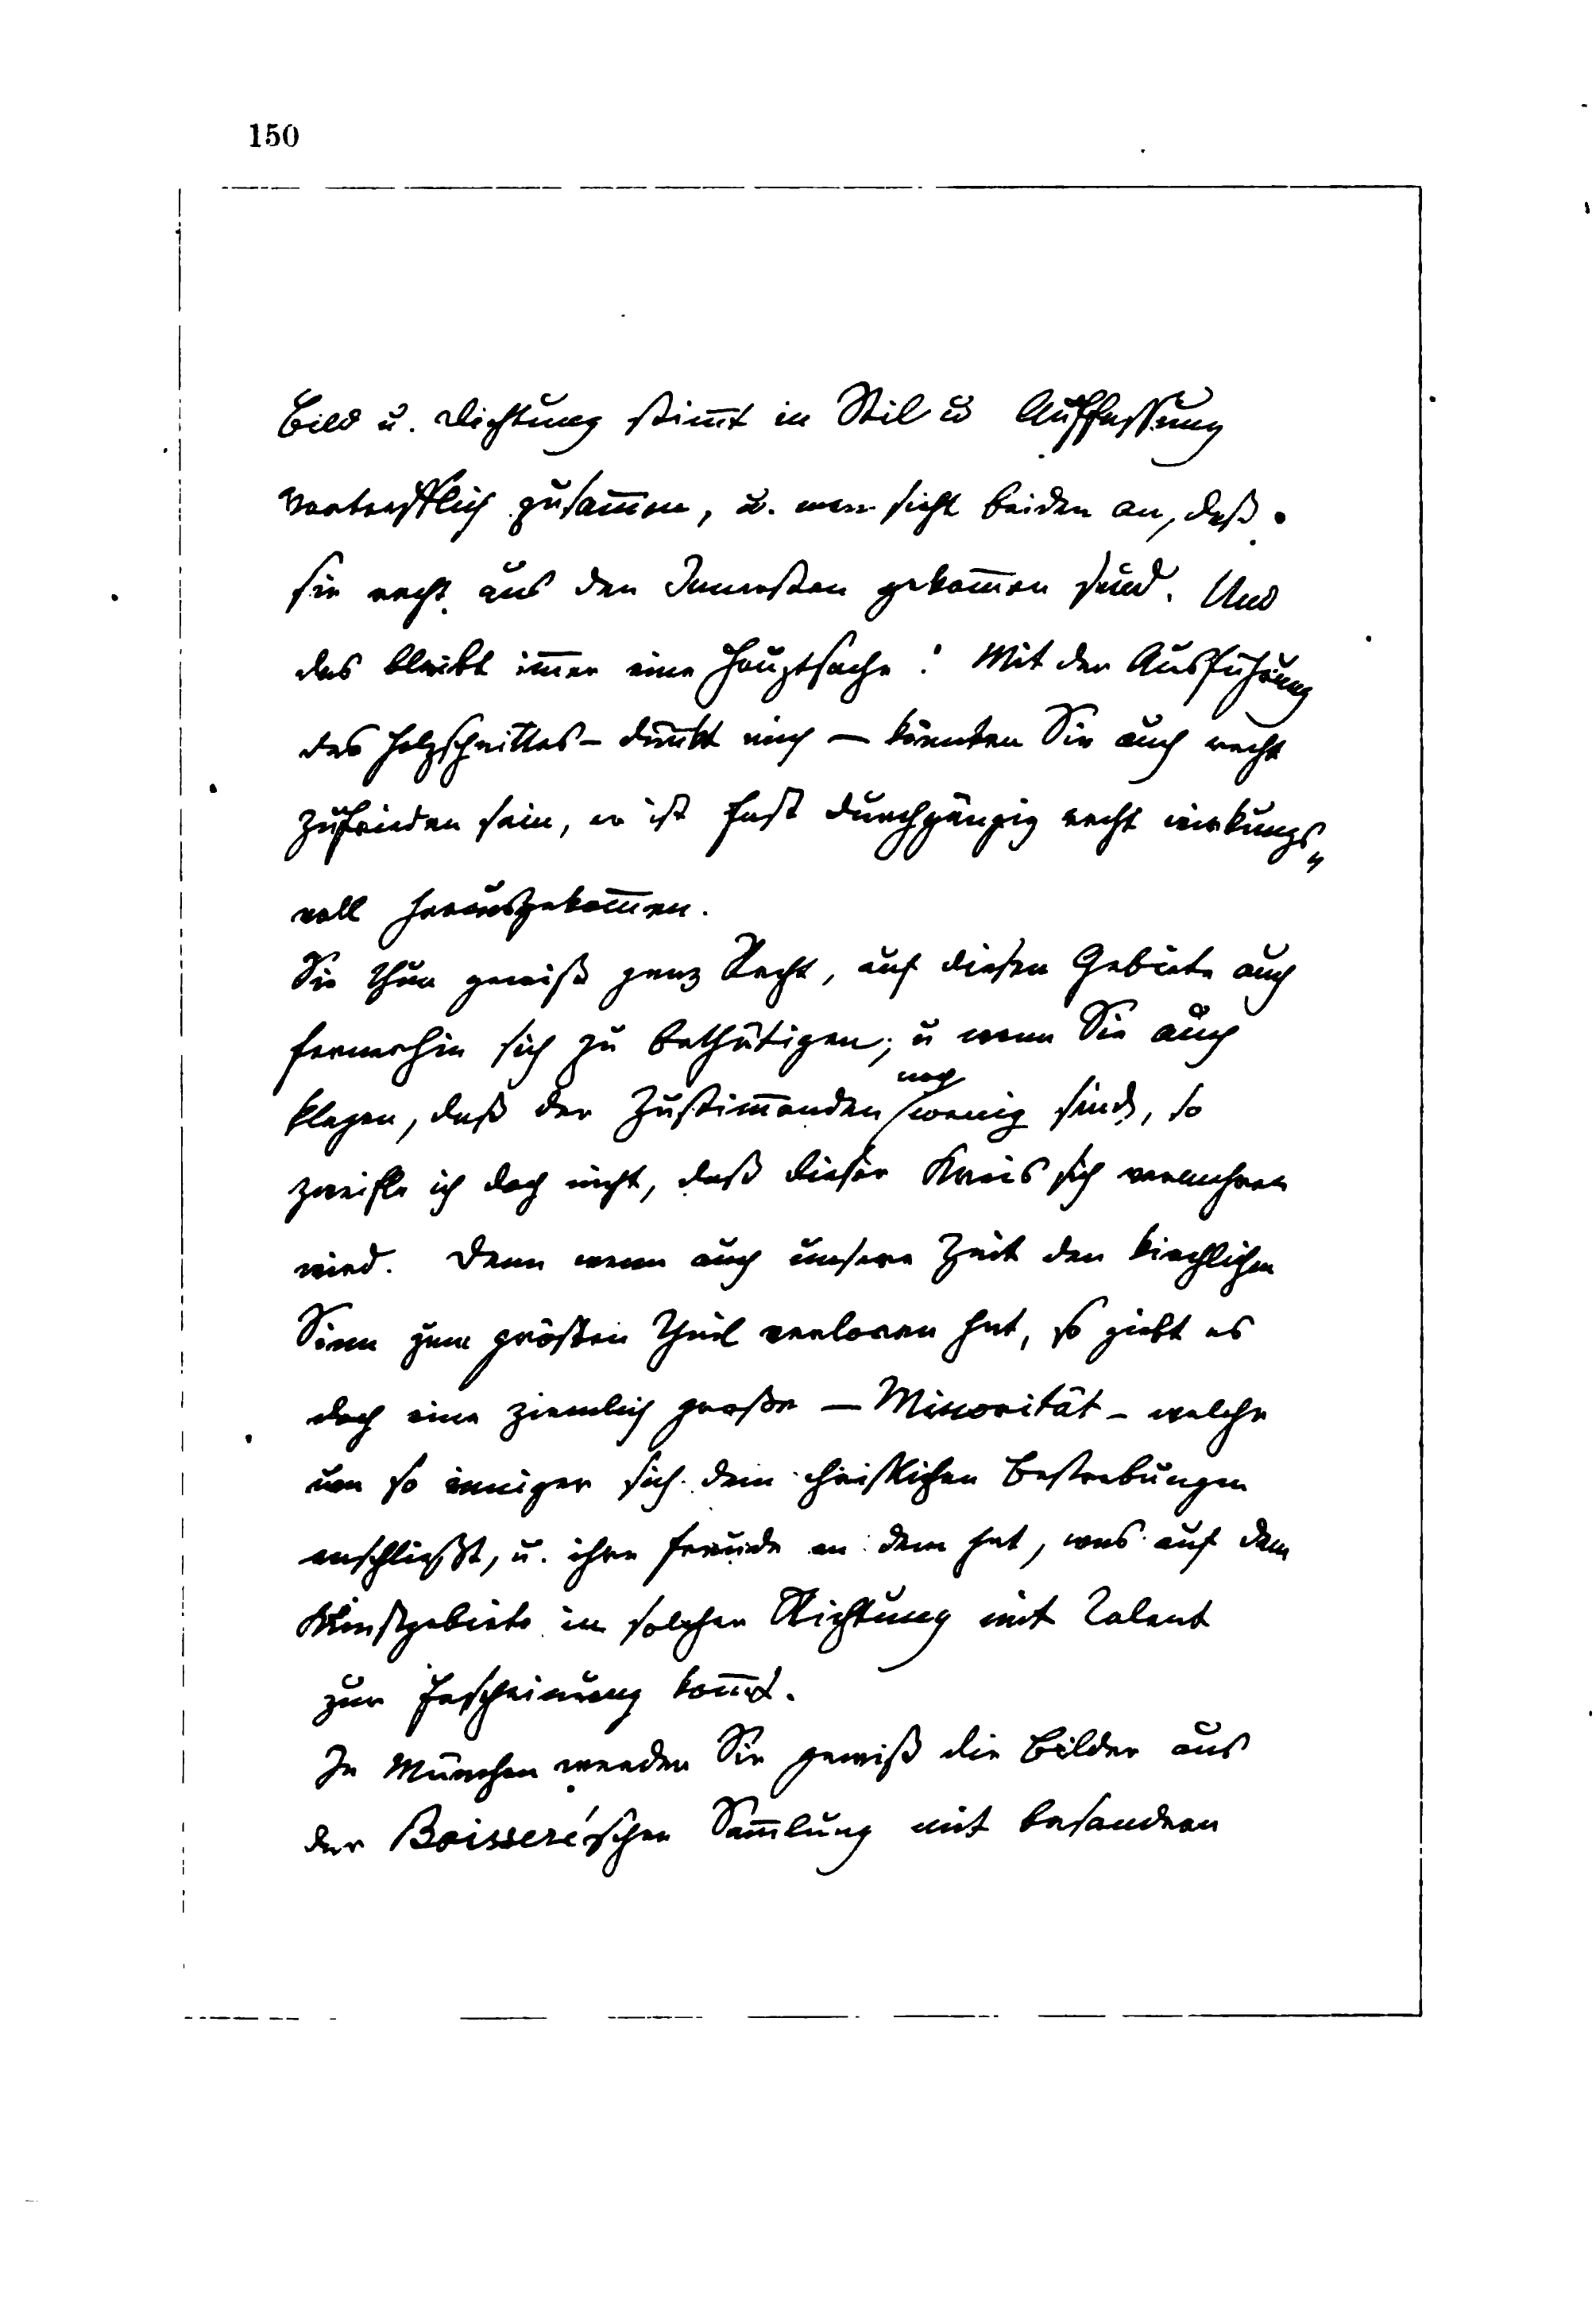 150
Bild u. Dichtung stim̅t in Stil u Auffassung
vortrefflich zusam̅en, u. man sieht beiden an, daß
sie recht aus den Innersten gekom̅en sind. Und
das bleibt im̅er eine Hauptsache! Mit der Ausführung
des Holzschnittes – dünkt mich – könnten Sie auch recht
zufrieden sein, er ist fast durchgängig recht wirkungs„
voll herausgekom̅en.
Sie thun gewiß ganz Recht, auf diesen Gebiete auch
fernerhin sich zu bethätigen; u wenn Sie auch
klagen, daß der Zustim̅enden noch wenig sind, so
zweifle ich doch nicht, daß dieser Kreis sich vermehren
wird. Denn wenn auch unsere Zeit den kirchlichen
Sinn zum größten Theil verloren hat, so giebt es
doch eine ziemlich große – Minorität – welche
um so inniger sich den christlichen Bestrebungen
anschließt, u. ihre Freude an dem hat, was auf dem
Kunstgebiete in solcher Richtung mit Talent
zur Erscheinung kom̅t.
In München werden Sie gewiß die Bilder aus
der Boisseré'schen Sam̅lung mit besondern